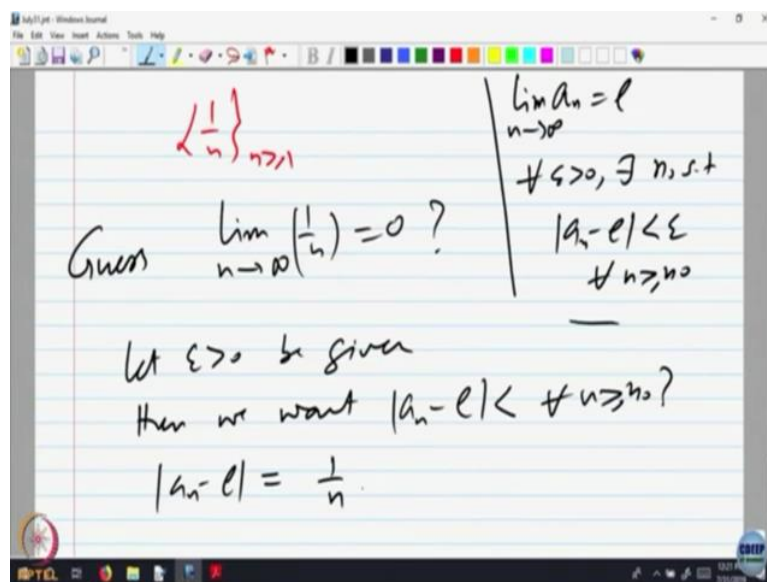 July31.jnt - Windows Journal
File Edit View Insert Actions Tools Help
{1/n} n≥1
Guess lim n→∞ (1/n) = 0 ?
lim n→∞ an = l
∀ ε>0, ∃ n, s.t
|an - l| < ε
∀ n≥n0
let ε>0 be given
then we want |an - l| < ∀ n≥n0 ?
|an - l| = 1/n
NPTEL
CDEEP